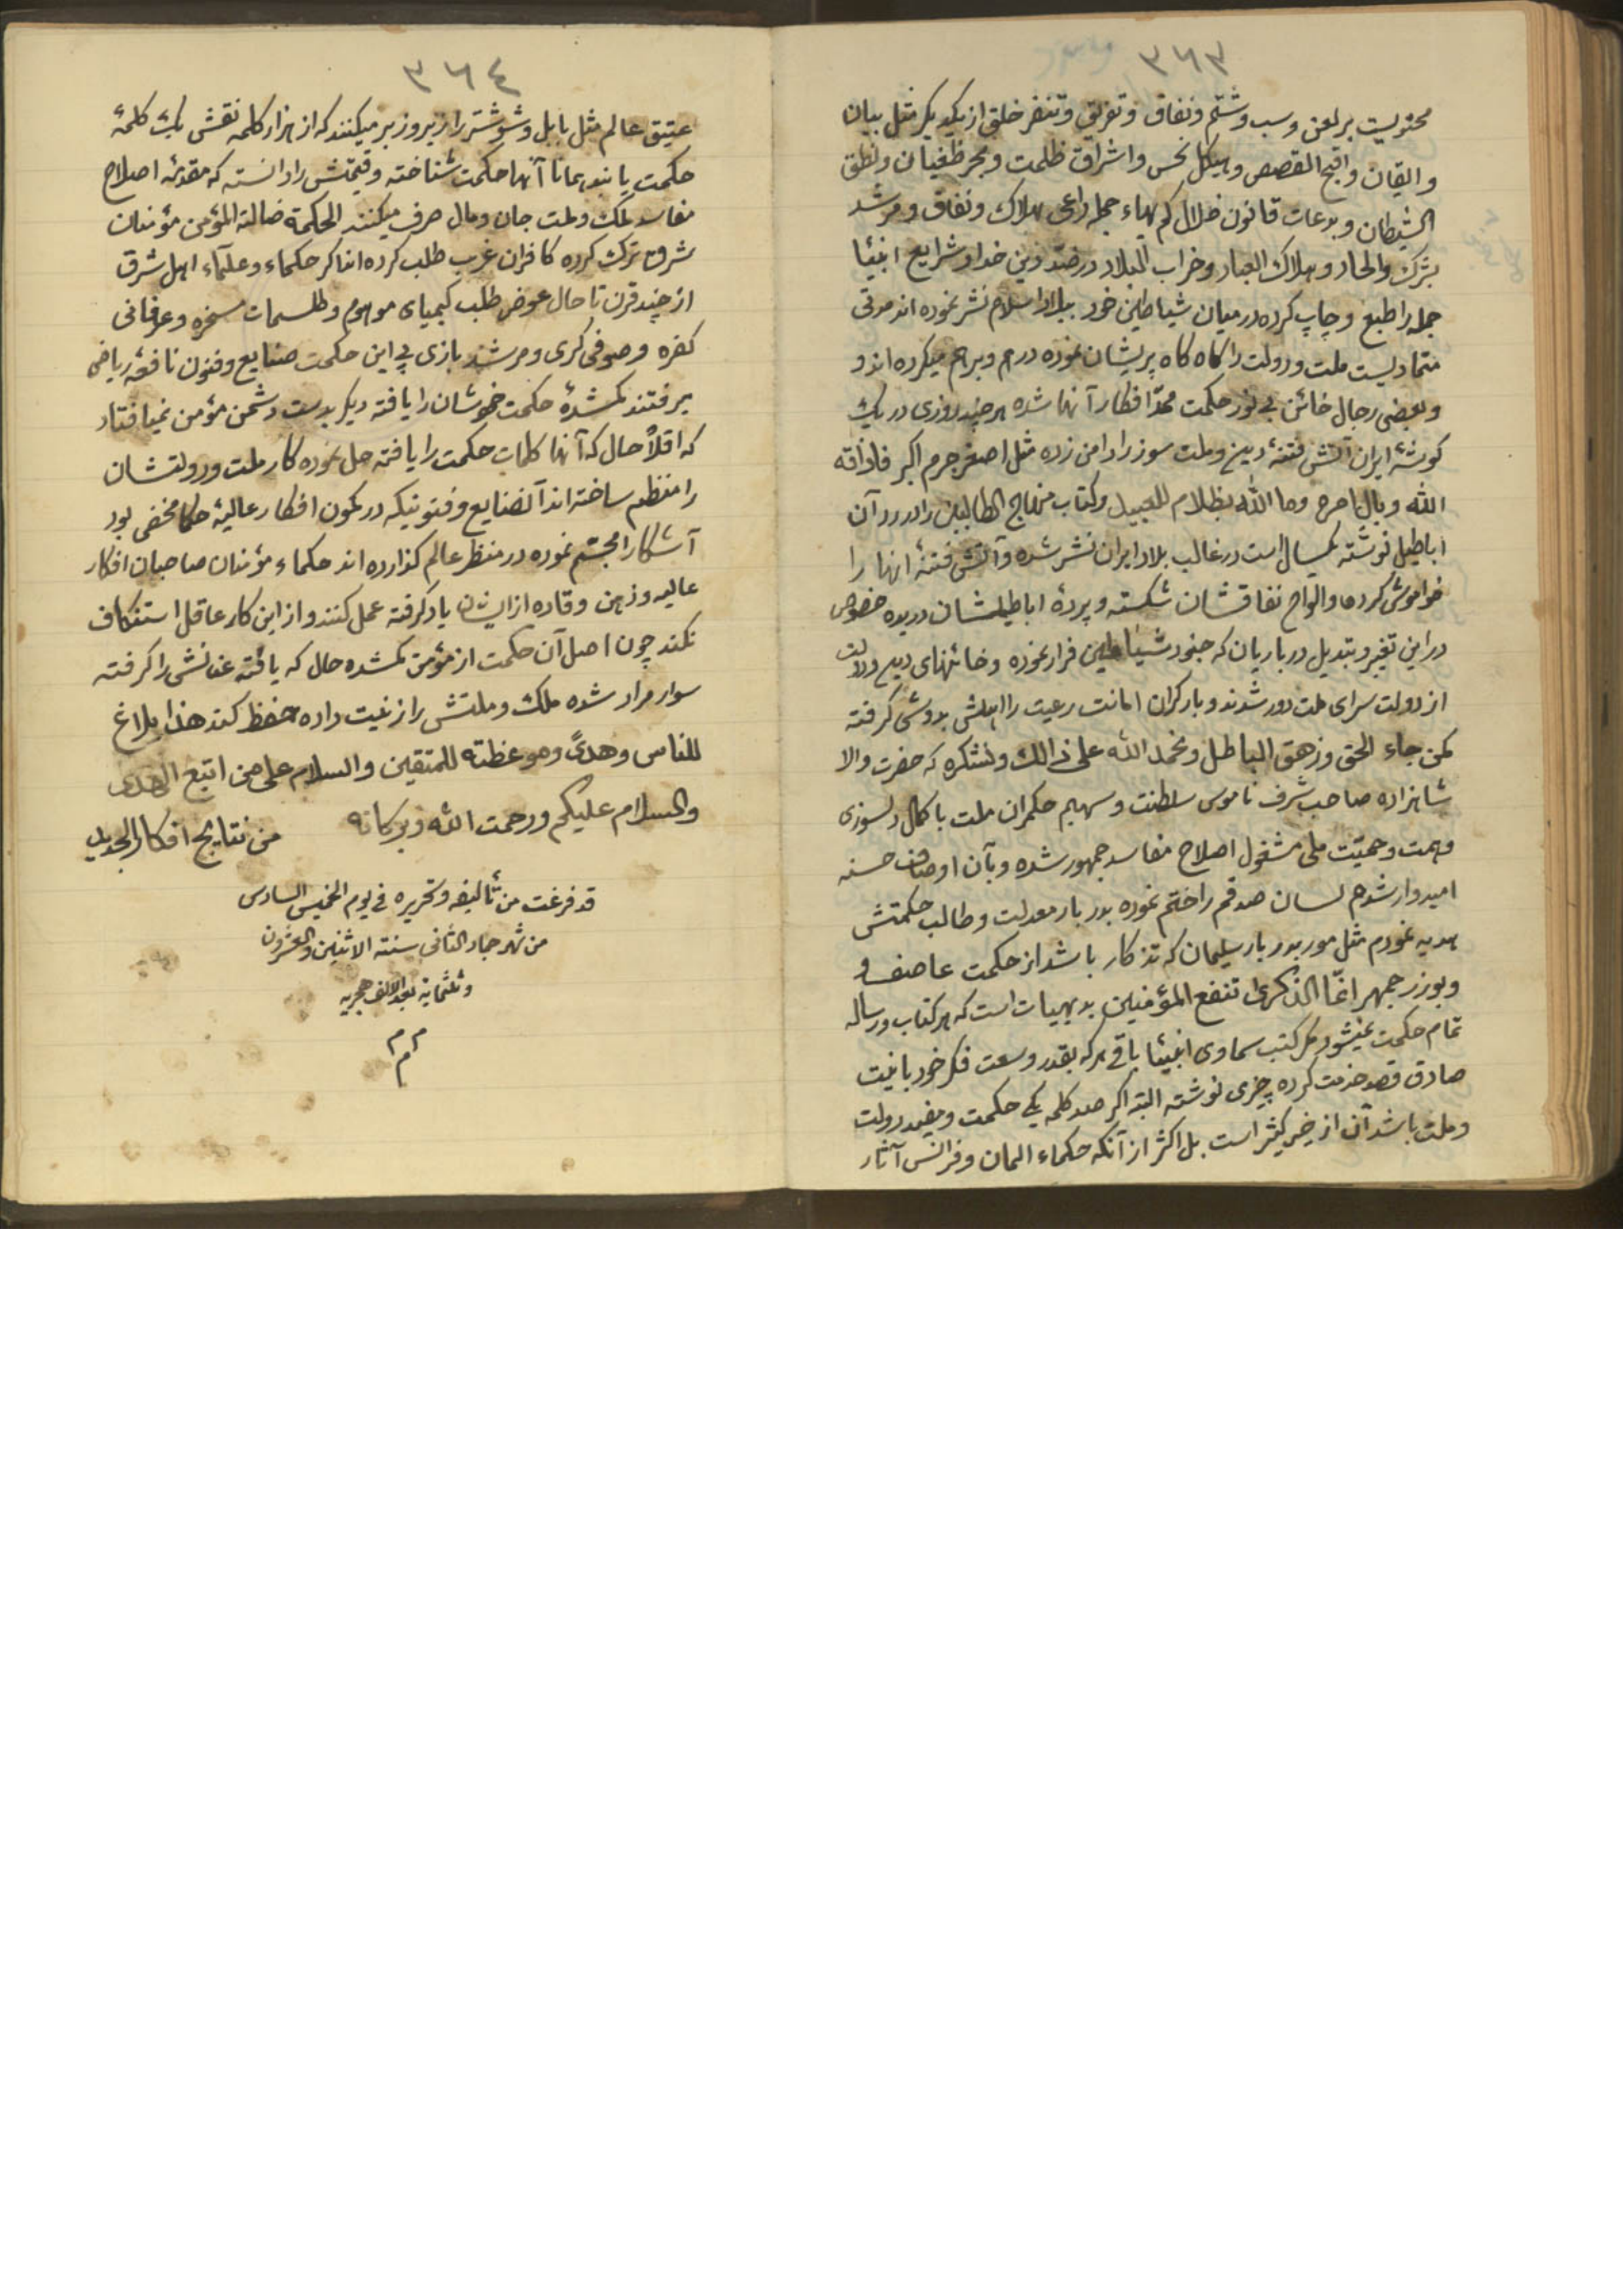 ٣٦٣
محتویست بر لعن و سب و شتم و نفاق و تفریق و تنفر خلق از یکدیکر مثل بیان
و ایقان و اقبح القصص و هیکل نحس و اشراق ظلمت و بحر طغیان و نطق
الشیطان و بدعات قانون ضلال کم بهاء جمله داعی بهلاک و نفاق و مرشد
بشرک و الحاد و هلاک العباد و خراب البلاد در ضد دین خدا و شرایع انبیا
جمله را طبع و چاپ کرده در میان شیاطین خود ببلاد اسلام نشر نموده اند مدتی
متمادیست ملت و دولت را کاه کاه پریشان نموده درهم و برهم میکرده اند و
و بعضی رجال خائن بی نور حکمت ممد افکار آنها شده هر چند روزی در یک
کوشهٔ ایران آتش فتنهٔ دین و ملت سوز را دامن زده مثل اصغر جرم اکبر فاذاقه
الله وبال امره وما الله بظلام للعبید و کتاب منهاج الطالبین را در رد آن
اباطیل نوشته یکسال است در غالب بلاد ایران نشر شده و آتش فتنهٔ انها را
خواموش کرده و الواح نفاقشان شکسته و پردهٔ اباطیلشان دریده خصوص
در این تغیر و تبدیل درباریان که جنود شیاطین فرار نموده و خائنهای دین و دولت
از دولت سرای ملت دور شدند و بار کران امانت رعیت را اهلش بدوش کرفته
کمن جاء الحق و زهق الباطل و نحمد الله علی ذالک و نشکره که حضرت والا
شاهزاده صاحب شرف ناموس سلطنت و سهیم حکمران ملت با کمال دلسوزی
و همت و حمیّت ملی مشغول اصلاح مفاسد جمهور شده و بآن اوصاف حسنه
امیدوار شدم لسان صدقم را ختم نموده بدربار معدلت و طالب حکمتش
هدیه نمودم مثل مور بدربار سلیمان که تذکار باشد از حکمت عاصف و
و بوزرجمهر انّما الذکری تنفع المؤمنین بدیهیات است که هر کتاب و رساله
تمام حکمت نمیشود مکر کتب سماوی انبیا باقی هر که بقدر وسعت فکر خود با نیت
صادق قصد خدمت کرده چیزی نوشته البته اکر صد کلمه یکی حکمت و مفید دولت
و ملت باشد آن از خیر کثیر است بل اکثر از آنکه حکماء المان و فرانس آثار
٣٦٤
عتیق عالم مثل بابل و شوشتر را زیر و زبر میکنند که از هزار کلمه نقش یک کلمهٔ
حکمت یابند همانا آنها حکمت شناخته و قیمتش را دانسته که مقدمهٔ اصلاح
مفاسد ملک و ملت جان و مال صرف میکنند الحکمة ضالة المؤمن مؤمنان
شرق ترک کرده کافران غرب طلب کرده اند اکر حکماء و علمآء اهل شرق
از چند قرن تا حال عوض طلب کیمیای موهوم و طلسمات مسخره و عرفانی
کفره و صوفی کری و مرشد بازی پی این حکمت صنایع و فنون نافعهٔ ریاضی
میرفتند کمشدهٔ حکمت خوشان را یافته دیکر بدست دشمن مؤمن نمیافتاد
که اقلاً حال که آنها کلمات حکمت را یافته حل نموده کار ملت و دولتشان
را منظم ساخته اند آنصنایع و فنونیکه در کمون افکار عالیهٔ حکما مخفی بود
آشکارا مجسّم نموده در منظر عالم کذارده اند حکماء مؤمنان صاحبان افکار
عالیه و ذهن وقاده از ایشان یاد کرفته عمل کنند و از این کار عاقل استنکاف
نکند چون اصل آن حکمت از مؤمن کمشده حال که یافته عنانش را کرفته
سوار مراد شده ملک و ملتش را زینت داده حفظ کند هذا بلاغ
للناس و هدیً و موعظة للمتقین و السلام علی من اتبع الهدی
والسلام علیکم و رحمت الله و برکاته من نتایج افکار الجدید
قد فرغت من تألیفه و تحریره فی یوم الخمیس السادس
من شهر جماد الثانی سنته الاثنین والعشرون
و ثلثمایة بعد الالف هجریه
م م م